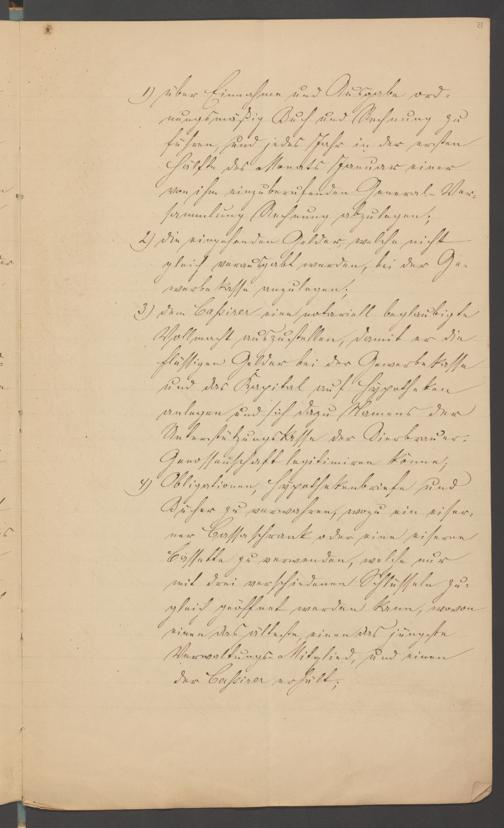 1) über Einnahme und Ausgabe ord-
nungsmäßig Buch und Rechnung zu
führen, und jedes Jahr in der ersten
Hälfte des Monats Januar einer
von ihm einzuberufenden General-Ver-
sammlung Rechnung abzulegen;
2) die eingehenden Gelder, welche nicht
gleich verausgabt werden, bei der Ge-
werbekasse anzulegen;
3) dem Cassirer eine notariell beglaubigte
Vollmacht auszustellen, damit er die
flüssigen Gelder bei der Gewerbekasse
und das Kapital auf Hypotheken
anlegen und sich dazu Namens der
Unterstützungskasse der Bierbrauer-
Genossenschaft legitimiren könne;
4) Obligationen, Hypothekenbriefe und
Bücher zu verwahren, wozu ein eiser-
ner Cassaschrank oder eine eiserne
Cassette zu verwenden, welche nur
mit drei verschiedenen Schlüsseln zu-
gleich geöffnet werden kann, wovon
einen das älteste einen das jüngste
Verwaltungs-Mitglied, und einen
der Cassirer erhält;